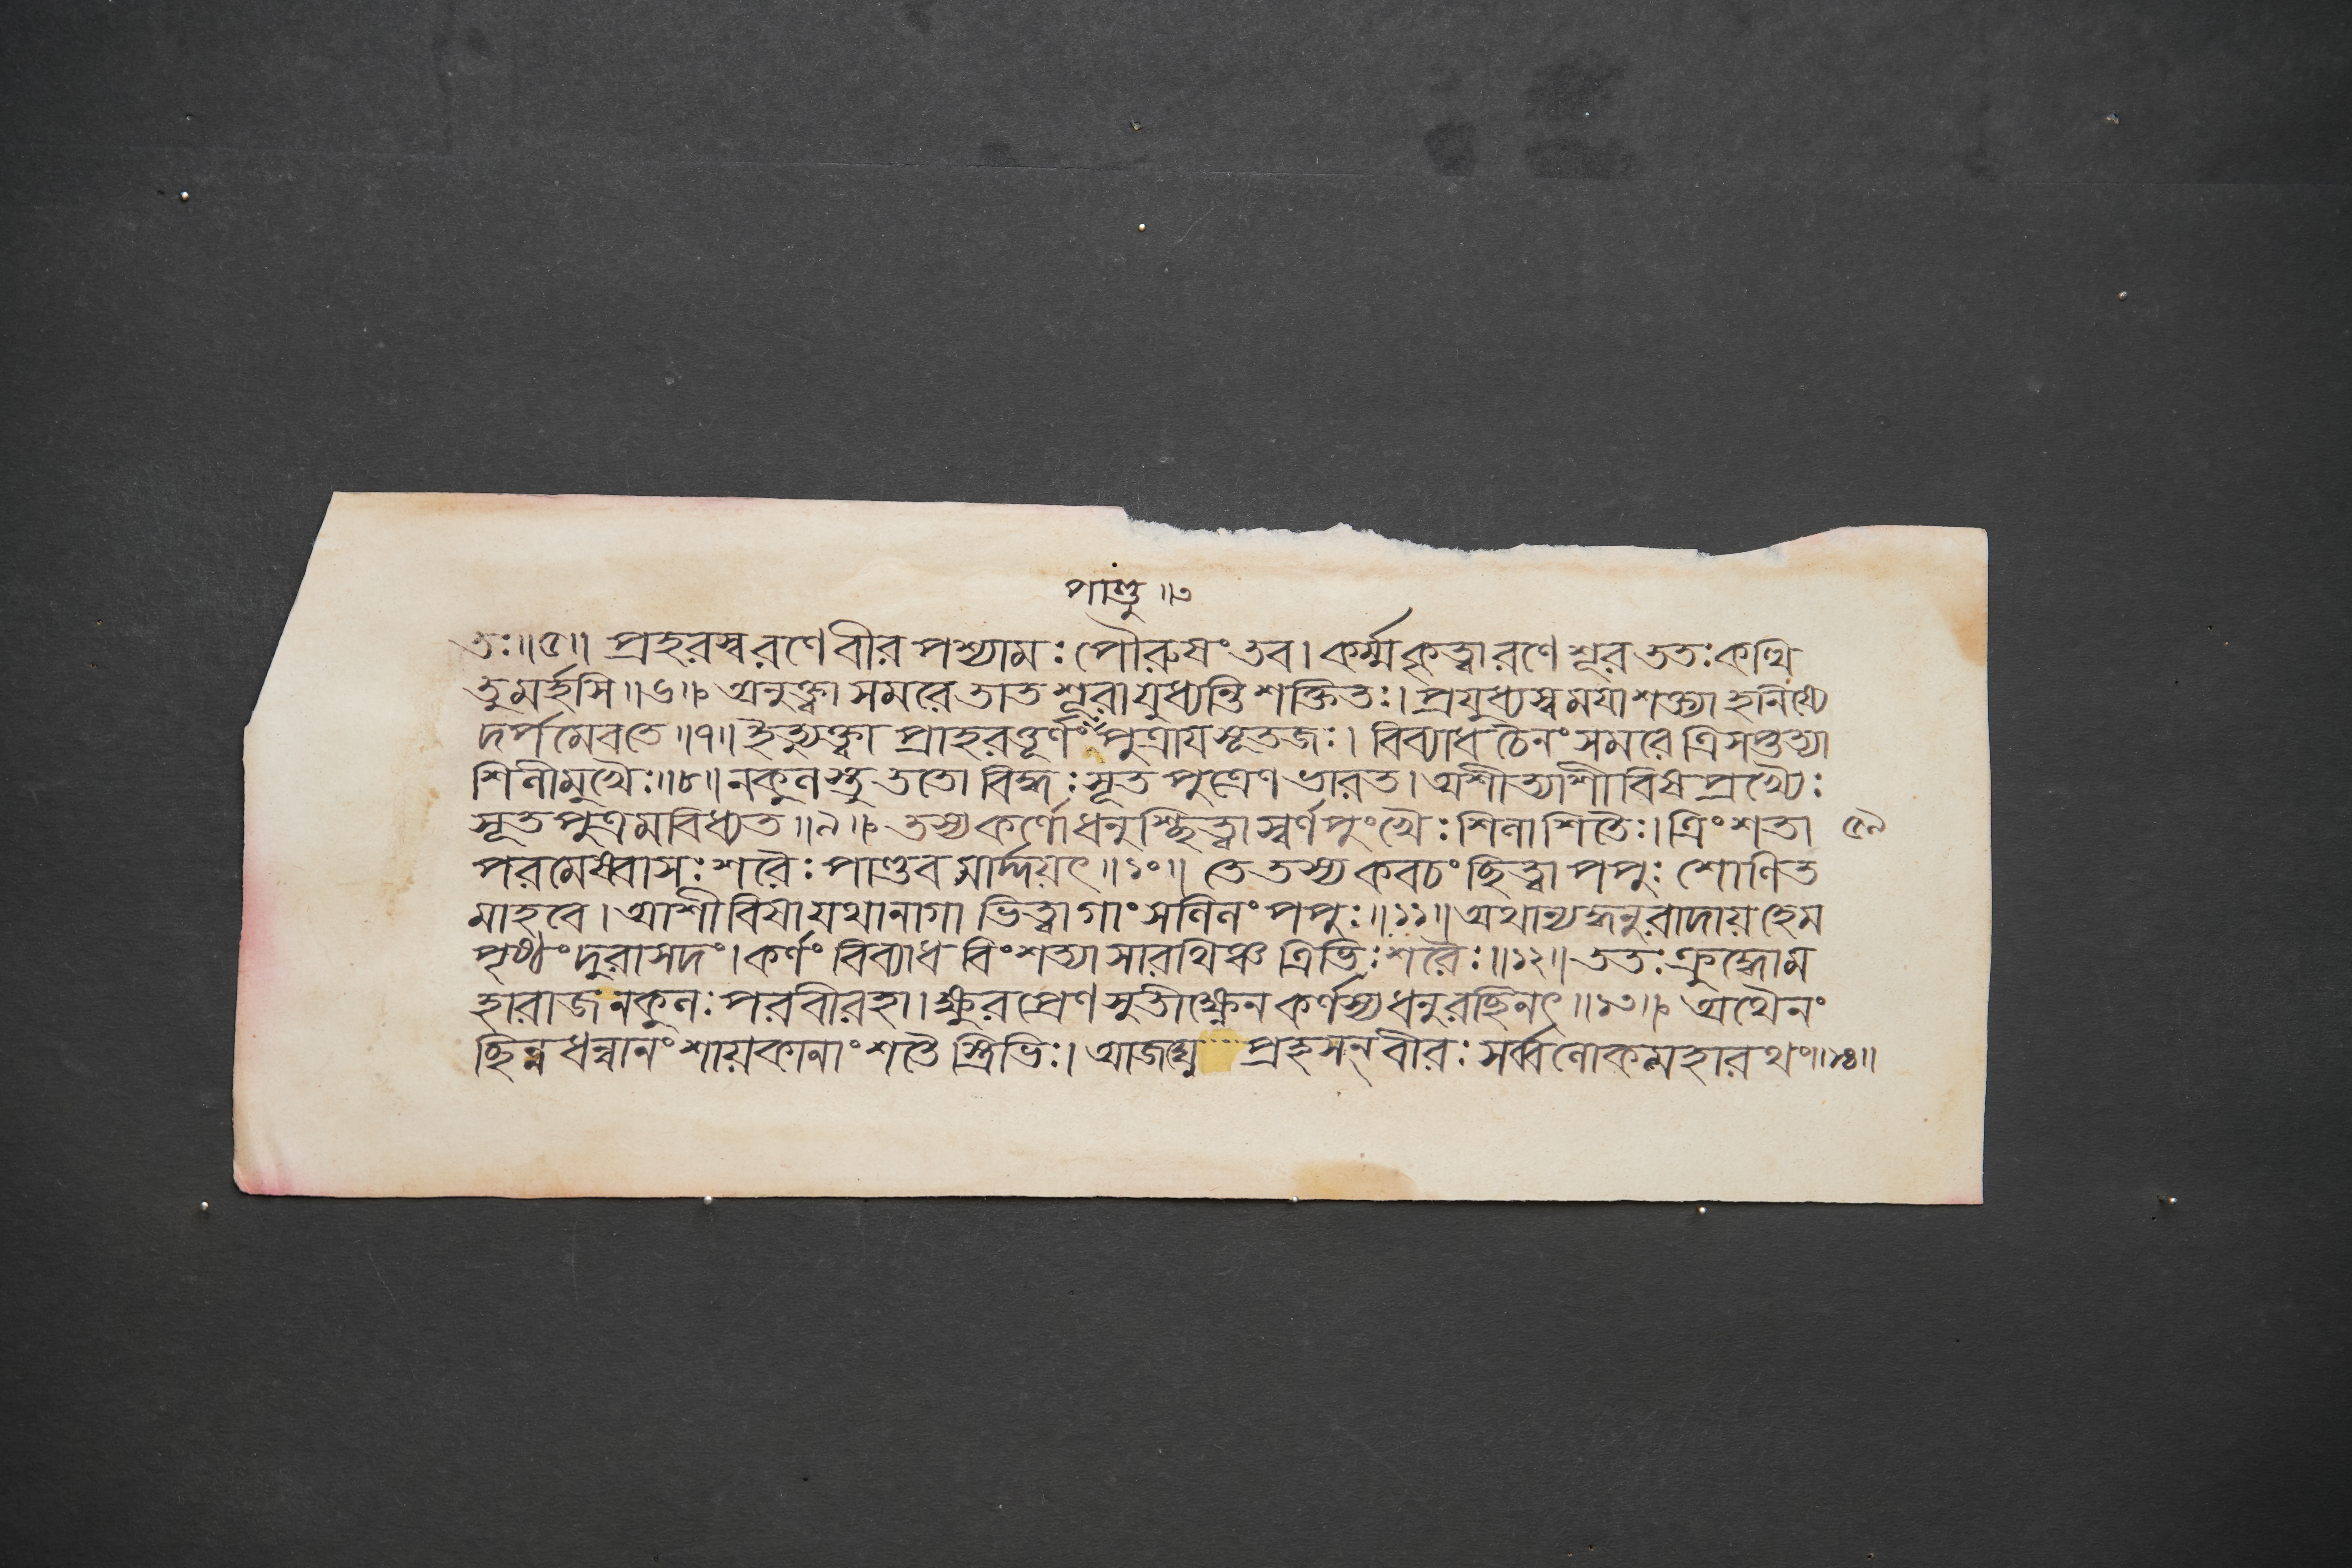 পাণ্ডু ॥৩
তঃ॥৫॥ প্রহরস্ব রণে বীর পশ্যামঃ পৌরুষং তব। কর্ম্ম কৃত্বা রণে শূর ততঃ কত্থি
তুমর্হসি॥৬॥ অনুক্ত্বা সমরে তাত শূরা যুধ্যন্তি শক্তিতঃ। প্রযুধ্যস্ব ময়া শক্ত্যা হনিষ্যে
দর্পমেবতে॥৭॥ ইত্যুক্ত্বা প্রাহরত্তূর্ণং পুত্রায় সূতজঃ। বিব্যাধ চৈনং সমরে ত্রিসপ্তত্যা
শিলীমুখৈঃ॥৮॥ নকুলস্তু ততো বিদ্ধঃ সূতপুত্রেণ ভারত। অশীত্যাশীবিষপ্রখ্যৈঃ
সূতপুত্রমবিধ্যত॥৯॥ তস্য কর্ণো ধনুশ্ছিত্ত্বা স্বর্ণপুংখৈঃ শিলাশিতৈঃ। ত্রিংশতা ৫৯
পরমেষ্বাসঃ শরৈঃ পাণ্ডবমার্দ্দয়ৎ॥১০॥ তে তস্য কবচং ছিত্ত্বা পপুঃ শোণিত
মাহবে। আশীবিষা যথা নাগা ভিত্ত্বা গাং সলিলং পপুঃ॥১১॥ অথান্যদ্ধনুরাদায় হেম
পৃষ্ঠং দুরাসদং। কর্ণং বিব্যাধ বিংশত্যা সারথিঞ্চ ত্রিভিঃ শরৈঃ॥১২॥ ততঃ ক্রুদ্ধো ম
হারাজ নকুলঃ পরবীরহা। ক্ষুরপ্রেণ সুতীক্ষ্ণেন কর্ণস্য ধনুরচ্ছিনৎ॥১৩॥ অথৈনং
ছিন্নধন্বানং শায়কানাং শতৈস্ত্রিভিঃ। আজঘ্নে প্রহসন্ বীরঃ সর্ব্বলোকমহারথং॥১৪॥